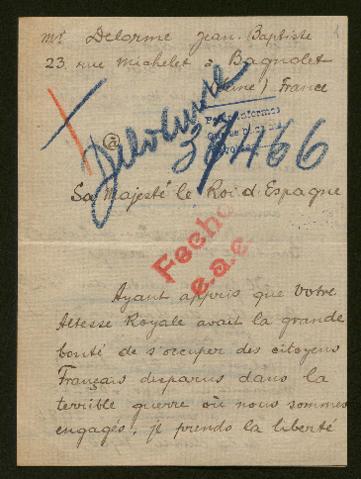 Mr Delorme Jean-Baptiste
23 rue Michelet à Bagnolet
(Seine) France
@
Delorme
Sa Majesté le Roi d'Espagne
Fecho
e.a.e.
Ayant appris que Votre
Altesse Royale avait la grande
bonté de s'occuper des citoyens
Français disparus dans la
terrible guerre où nous sommes
engagés, je prends la liberté